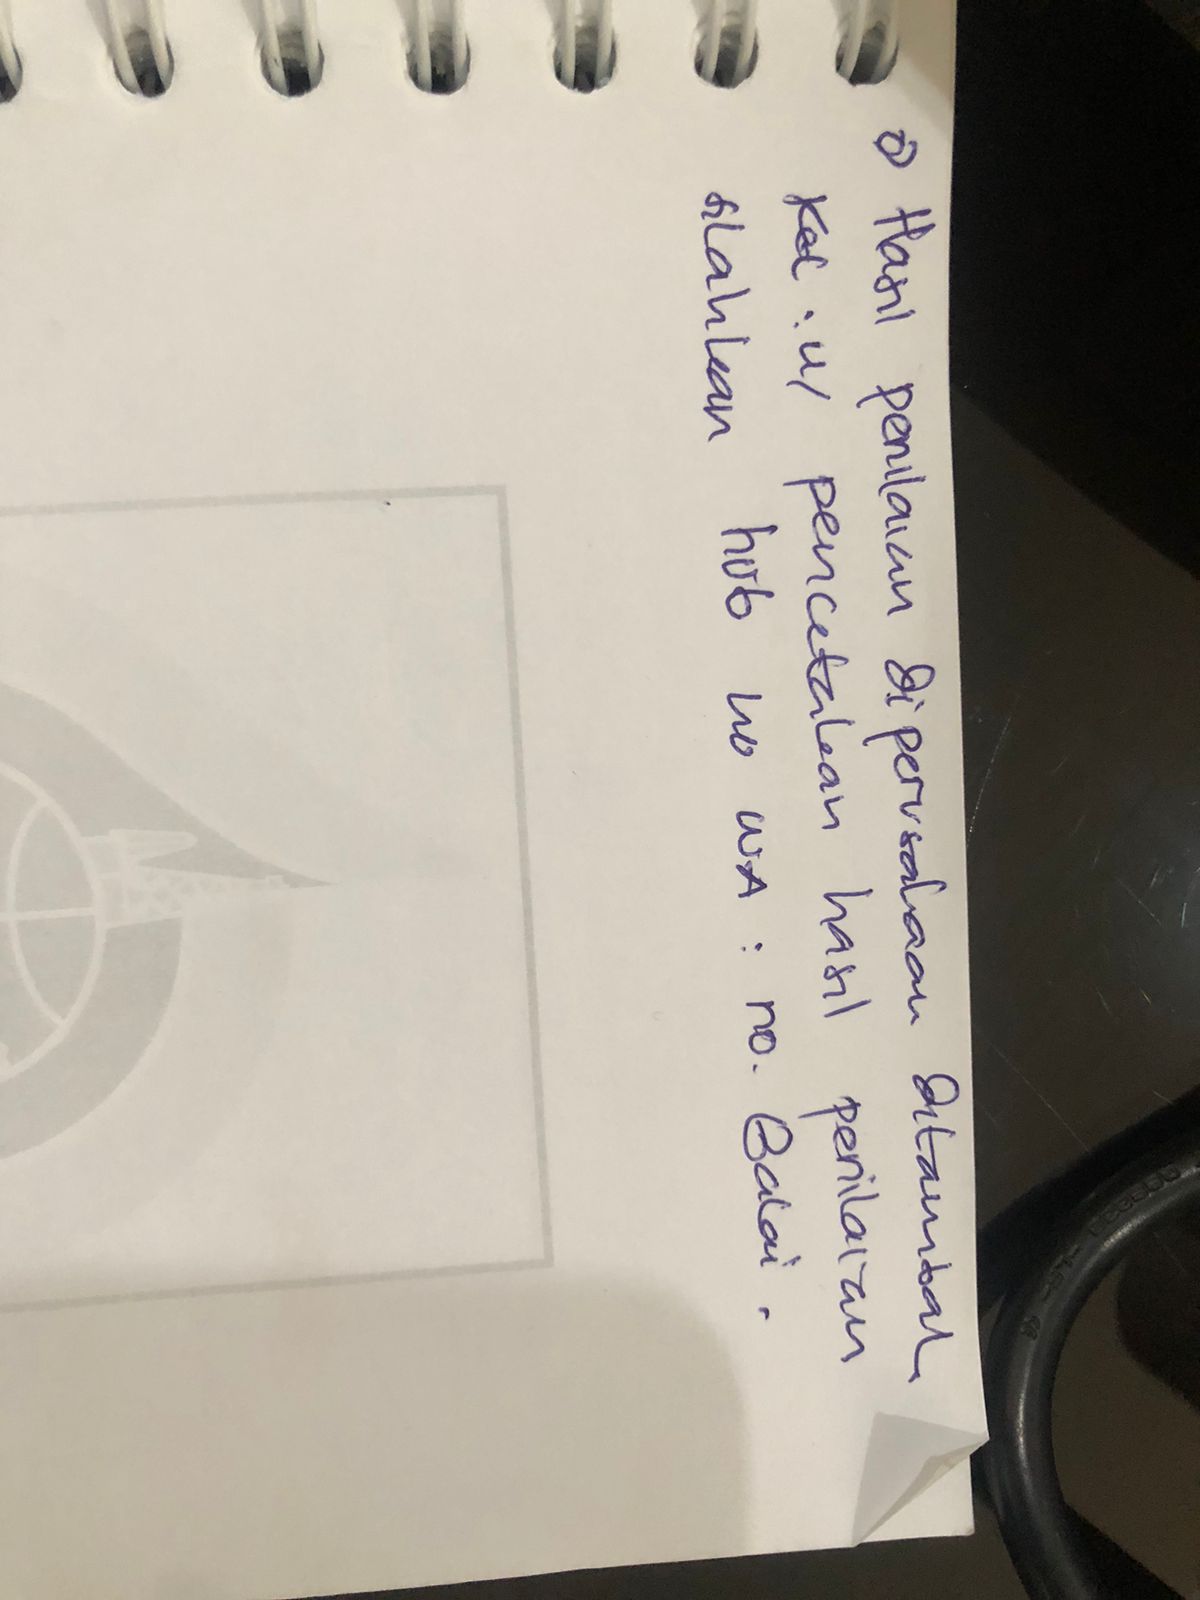 o) Hasil penilaian diperusahaan Ditambah
Ket : u/ pencetakan hasil penilaian
silahkan hub no WA : no. Balai .